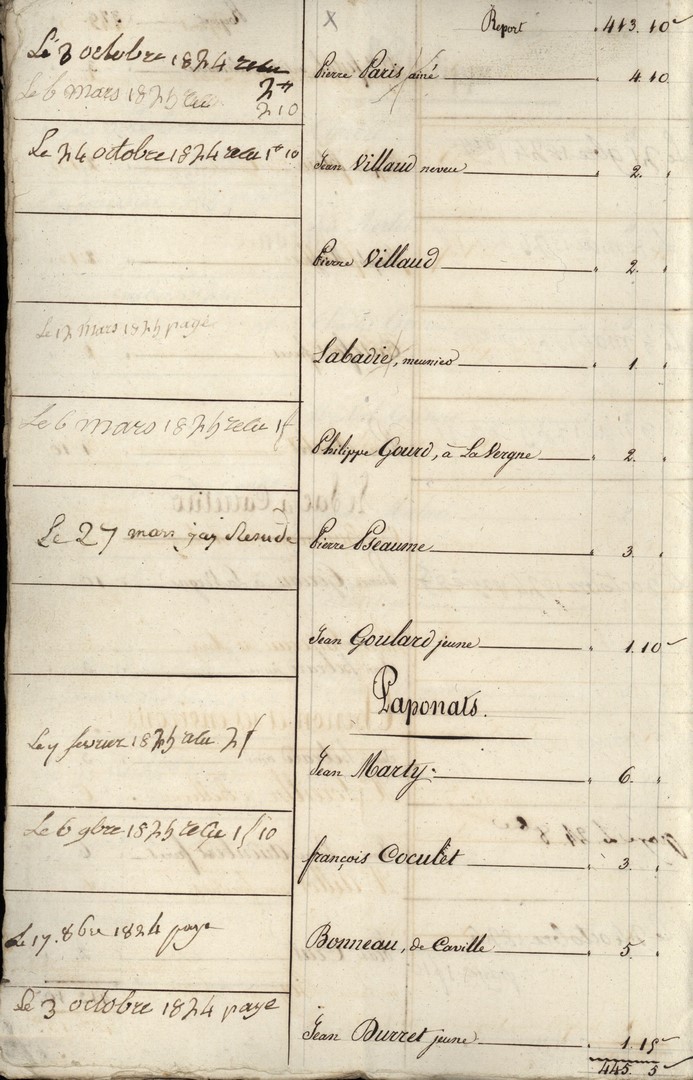 Report 443. 10
Le 3 octobre 1824 recu
2#
Le 6 mars 1825 recu
2 10
Pierre Paris ainé 4. 10
Le 24 octobre 1824 recu 1# 10
Jean Villaud neveu 2.
Pierre Villaud 2.
Le 12 mars 1825 payé
Labadie, meunier 1.
Le 6 mars 1825 recu 1f
Philippe Gourd, à La Vergne 2.
Le 27 mars
Pierre Pseaume 3.
Jean Goulard jeune 1. 10
Paponats.
Le 7 fevrier 1825 recu 2f
Jean Marty 6.
Le 6 9bre 1825 reçu 1f 10
françois Coculet 3.
Le 17. 8bre 1824 paye
Bonneau, de Caville 5.
Le 3 octobre 1824 paye
Jean Durret jeune 1. 15
445. 5